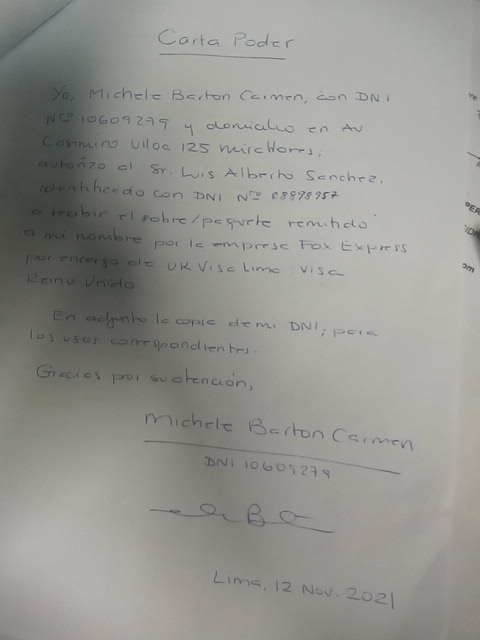 Carta Poder
Yo, Michele Barton Carmen, con DNI
Nro 10609279 y domicilio en AV
Casimiro Ulloa 125 Miraflores,
autorizo al Sr. Luis Alberto Sanchez,
identificado con DNI Nro 08898957
a recibir el sobre/paquete remitido
a mi nombre por la empresa Fox Express
por encargo de UK Visa Lima: Visa
Reino Unido
En adjunto la copia de mi DNI, para
los usos correspondientes.
Gracias por su atención,
Michele Barton Carmen
DNI 10609279
Lima, 12 Nov. 2021